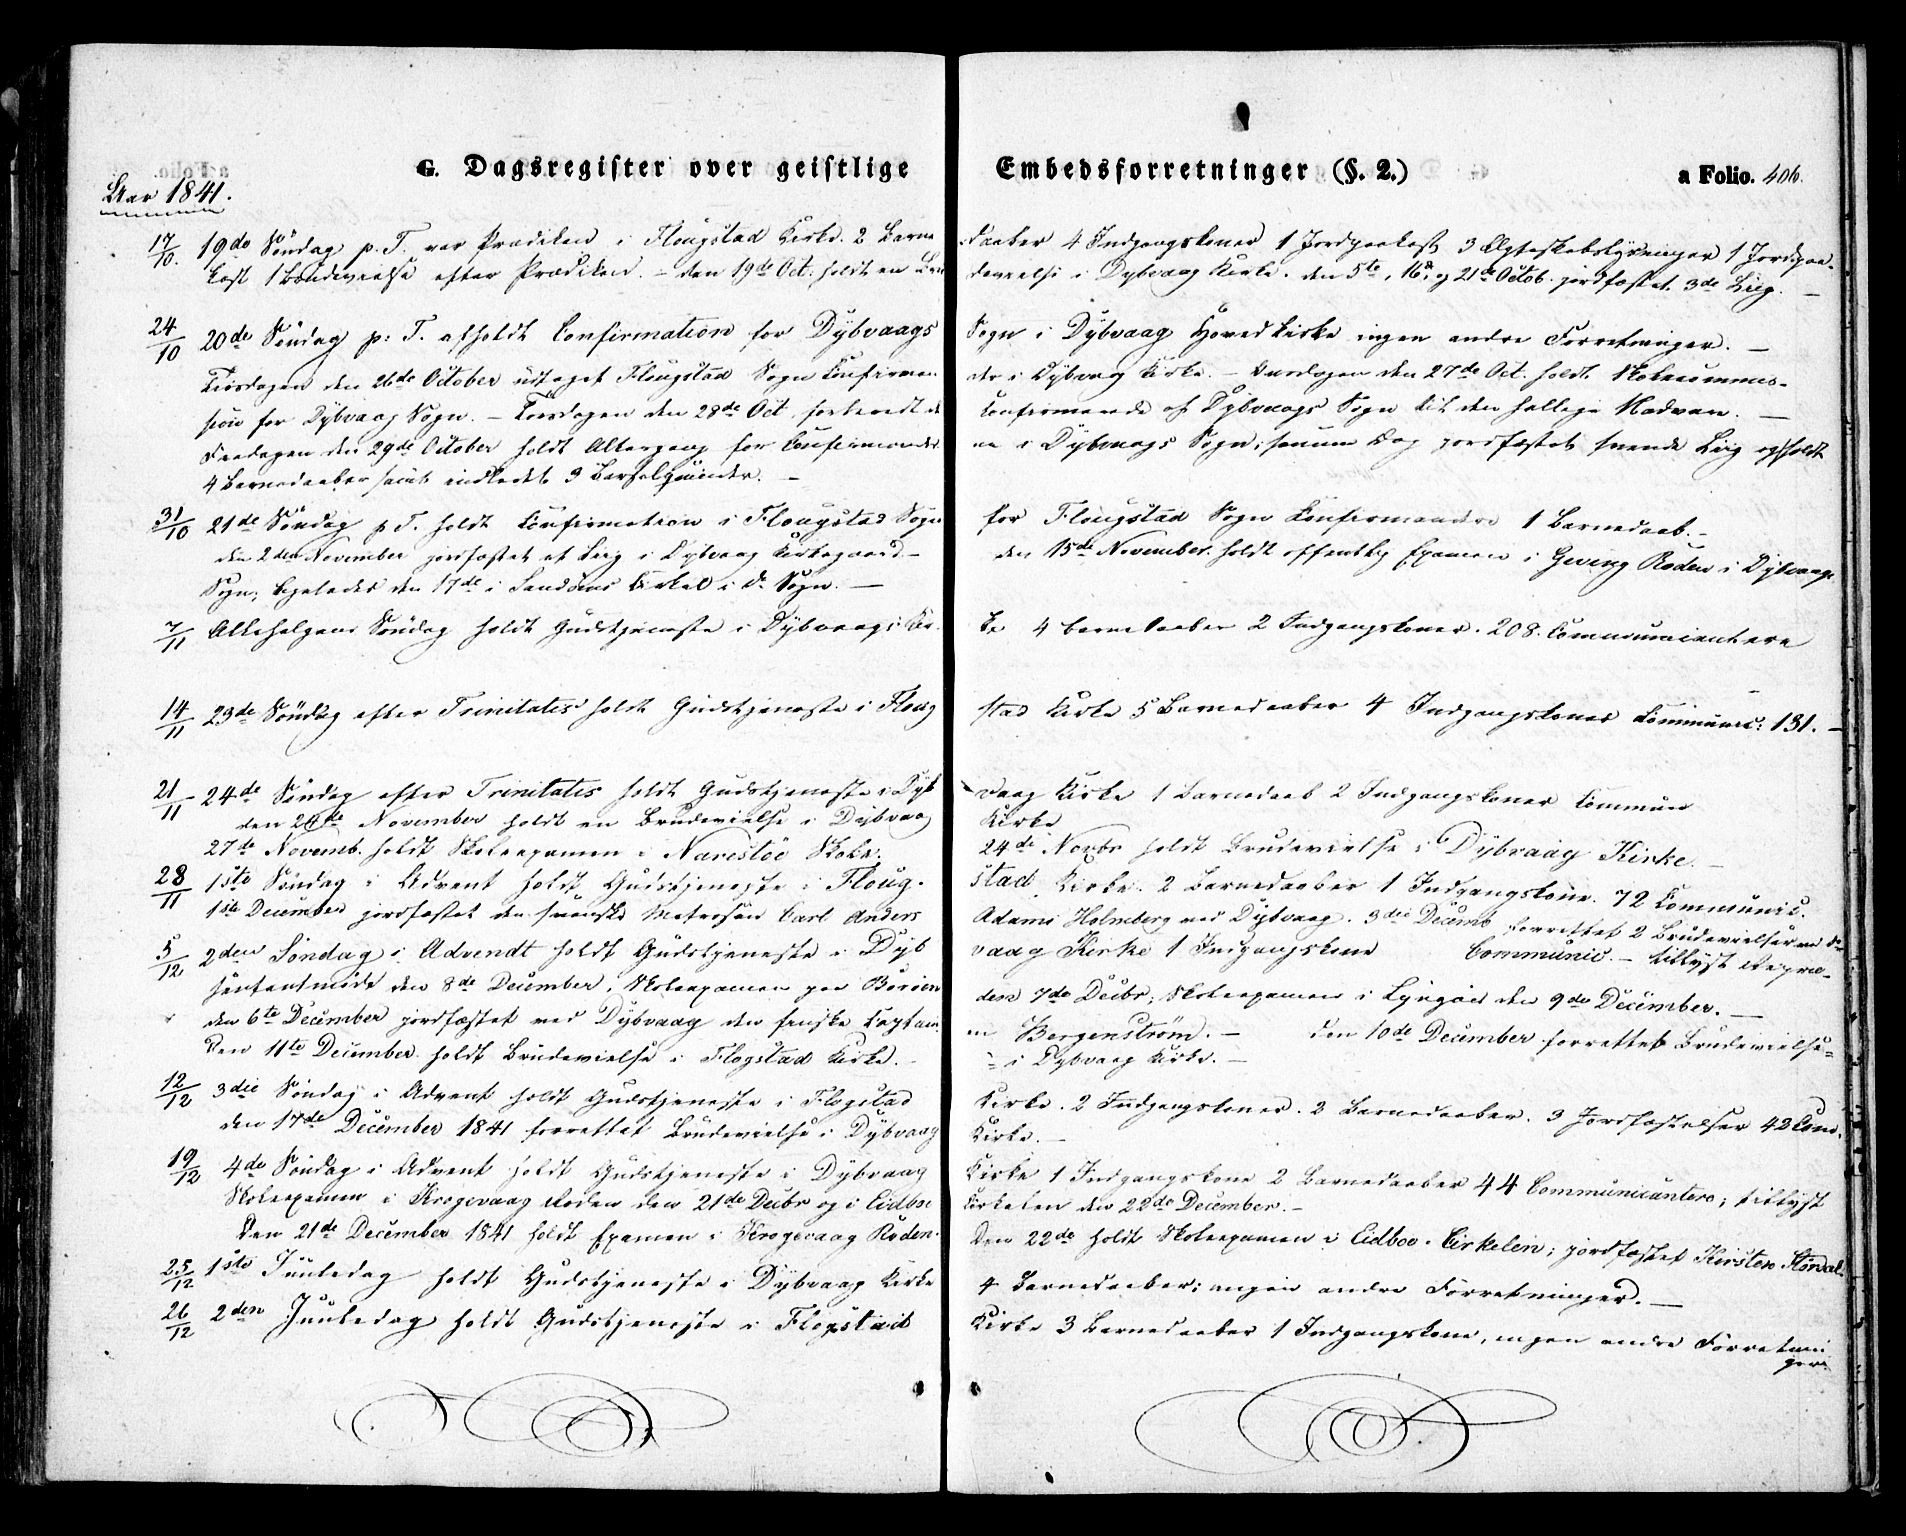 G. Dagsregister over geistlige Embedsforretninger (§. 2.) a Folio. 406.
Aar 1841.
17/10. 19de Søndag p. T. var Prædiken i Flougstad Kirke. 2 Barnedaaber 4 Indgangskoner 1 Jordpaakast 3 Ægteskabslysninger 1 Jordpaa-
kast 1 Brudevielse efter Prædiken. – den 19de Oct. holdt en Brudevielse i Dybvaag Kirke. den 5te, 16de og 21de Octob. jordfæstet 3de Liig. –
24/10 20de Søndag p: T. afholdt Confirmation for Dÿbvaags Sogn i Dÿbvaag Hovedkirke ingen andre Forretninger. –
Tirsdagen den 26de October udtaget Flougstad Sogn Confirmander i Dÿbvaag Kirke. – Onsdagen den 27de Oct. holdt Skolecommis-
sion for Dÿbvaag Sogn. – Torsdagen den 28de Oct. forberedt de Confirmerede af Dÿbvaags Sogn til den hellige Nadvere. –
Fredagen den 29de October holdt Altergang for Confirmanderne i Dÿbvaags Sogn; samme Dag jordfæstet Liig og holdt
4 Barnedaaber samt indledet 3 Barselqvinder. –
31/10 21de Søndag p T. holdt Confirmation i Flougstad Sogn for Flougstad Sogn Confirmander 1 Barnedaab. –
den 2den November jordfæstet et Liig i Dÿbvaag Kirkegaard – den 15de November holdt offentlig Examen i Geving Roden i Dÿbvaags
Sogn; ligeledes den 17de i Sandøens Cirkel i d. Sogn. –
7/11 Allehelgens Søndag holdt Gudstjeneste i Dÿbvaags Kirke 4 Barnedaaber 2 Indgangskoner. 208. Communicantere
14/11 23de Søndag efter Trinitatis holdt Gudstjeneste i Flougstad Kirke 5 Barnedaaber 4 Indgangskoner Communic: 131. –
21/11 24de Søndag efter Trinitatis holdt Gudstjeneste i Dÿbvaag Kirke 1 Barnedaab 2 Indgangskoner Commun
den November holdt en Brudevielse i Dÿbvaag Kirke
27de Novemb. holdt Skoleexamen i Narestöe Skole. 24de Novbr holdt Brudevielse i Dÿbvaag Kirke. –
28/11 1ste Søndag i Advent holdt Gudstjeneste i Flougstad Kirke. 2 Barnedaaber 1 Indgangskone. 72 Communic.
1ste December jordfæstet den svenske Matrosen Carl Anders Adams Holmberg ved Dÿbvaag. 3die Decemb forrettet 2 Brudevielser
5/12 2den Søndag i Advendt holdt Gudstjeneste i Dÿbvaag Kirke 1 Indgangskone Communic. – tillyst Repræ-
sentantmöde den 8de December, Skoleexamen paa Boröen den 7de Decbr; Skoleexamen i Lÿngöer den 9de December. –
den 6te December jordfæstet ved Dÿbvaag den finske Captain Bergenström. – den 10de December forrettet Brudevielse
Den 11te December holdt Brudevielse i Flogstad Kirke. – i Dÿbvaag Kirke. –
12/12 3die Søndag i Advent holdt Gudstjeneste i Flogstad Kirke. 2 Indgangskoner. 2 Barnedaaber. 3 Jordfæstelser 42 Com.
den 17de December 1841 forrettet Brudevielse i Dÿbvaag Kirke. –
19/12 4de Søndag i Advent holdt Gudstjeneste i Dÿbvaag Kirke 1 Indgangskone 2 Barnedaaber 44 Communicantere; tillyst
Skoleexamen i Krogevaag Roden den 21de Decbr og i Eidboe Cirkelen den 22de December. –
Den 21de December 1841 holdt Examen i Krogevaag Roden. Den 22de holdt Skoleexamen i Eidboe Cirkelen; jordfæstet Kirsten
25/12 1ste Juuledag holdt Gudstjeneste i Dÿbvaag Kirke 4 Barnedaaber; ingen andre Forretninger. –
26/12 2den Juuledag holdt Gudstjeneste i Flogstad Kirke 3 Barnedaaber 1 Indgangskone, ingen andre Forretnin
ger.